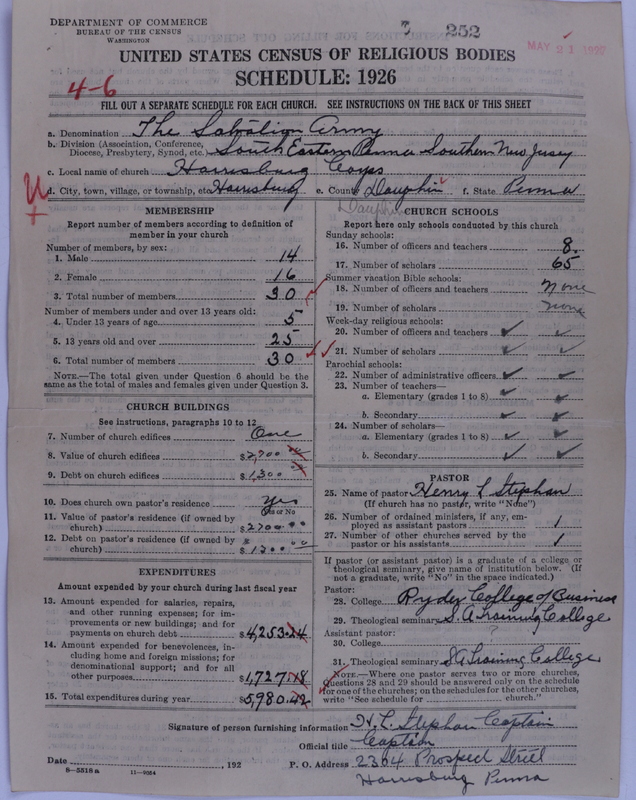 DEPARTMENT OF COMMERCE
BUREAU OF THE CENSUS
WASHINGTON
252
MAY 21 1927
UNITED STATES CENSUS OF RELIGIOUS BODIES
SCHEDULE: 1926
4-6
FILL OUT A SEPARATE SCHEDULE FOR EACH CHURCH. SEE INSTRUCTIONS ON THE BACK OF THIS SHEET
a. Denomination The Salvation Army
b. Division (Association, Conference, Diocese, Presbytery, Synod, etc.) South Eastern Penna Southern New Jersy
c. Local name of church Harrisburg Corps
d. City, town, village, or township, etc. Harrisburg e. County Dauphin f. State Penna
Dauphin
MEMBERSHIP
Report number of members according to definition of
member in your church
Number of members, by sex:
1. Male 14
2. Female 16
3. Total number of members 30
Number of members under and over 13 years old:
4. Under 13 years of age 5
5. 13 years old and over 25
6. Total number of members 30
NOTE.—The total given under Question 6 should be the
same as the total of males and females given under Question 3.
CHURCH BUILDINGS
See instructions, paragraphs 10 to 12
7. Number of church edifices One
8. Value of church edifices $2,700 00
9. Debt on church edifices $1,300 00
10. Does church own pastor's residence Yes
Yes or No
11. Value of pastor's residence (if owned by
church) $2700 00
12. Debt on pastor's residence (if owned by
church) $1300 00
EXPENDITURES
Amount expended by your church during last fiscal year
13. Amount expended for salaries, repairs,
and other running expenses; for im-
provements or new buildings; and for
payments on church debt $4,253.24
14. Amount expended for benevolences, in-
cluding home and foreign missions; for
denominational support; and for all
other purposes $1,727.18
15. Total expenditures during year $5,980.42
CHURCH SCHOOLS
Report here only schools conducted by this church
Sunday schools:
16. Number of officers and teachers 8
17. Number of scholars 65
Summer vacation Bible schools:
18. Number of officers and teachers none
19. Number of scholars none
Week-day religious schools:
20. Number of officers and teachers
21. Number of scholars
Parochial schools:
22. Number of administrative officers
23. Number of teachers—
a. Elementary (grades 1 to 8)
b. Secondary
24. Number of scholars—
a. Elementary (grades 1 to 8)
b. Secondary
PASTOR
25. Name of pastor Henry L Stephan
(If church has no pastor, write "None")
26. Number of ordained ministers, if any, em-
ployed as assistant pastors 1
27. Number of other churches served by the
pastor or his assistants 1
If pastor (or assistant pastor) is a graduate of a college or
theological seminary, give name of institution below. (If
not a graduate, write "No" in the space indicated.)
Pastor:
28. College Ryder College of Business
29. Theological seminary S. A Training College
Assistant pastor:
30. College
31. Theological seminary S A Training College
NOTE.—Where one pastor serves two or more churches,
Questions 28 and 29 should be answered only on the schedule
for one of the churches; on the schedules for the other churches,
write "See schedule for church."
Signature of person furnishing information H. L. Stephan Captain
Official title Captain
Date , 192 P. O. Address 2304 Prospect Street
8-5518a 11-9054 Harrisburg Penna